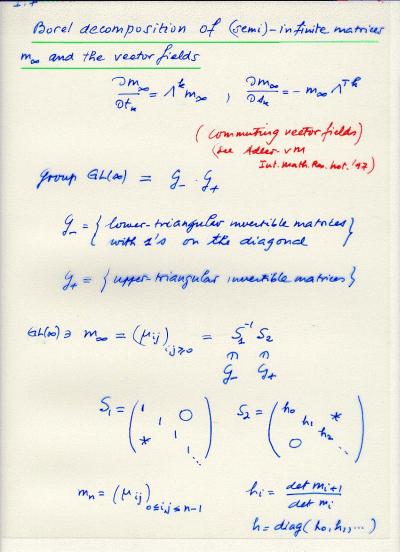 1.7
Borel decomposition of (semi)-infinite matrices
m∞ and the vector fields
∂m∞/∂tₖ = Λᵏ m∞ , ∂m∞/∂sₖ = -m∞ Λᵀᵏ
(commuting vector fields)
(see Adler-vM
Int. Math. Res. Not. '97)
group GL(∞) = G₋ . G₊
G₋ = { lower-triangular invertible matrices
with 1's on the diagonal }
G₊ = { upper-triangular invertible matrices }
GL(∞) ∋ m∞ = (μij)i,j≥0 = S₁⁻¹ S₂
∩ ∩
G₋ G₊
S₁ = ( 1 1 O * 1 1 ⋱ ) S₂ = ( h₀ h₁ * h₂ O ⋱ )
mₙ = (μij)0≤i,j≤n-1 hi = det mi+1 / det mi
h = diag(h₀, h₁, ...)